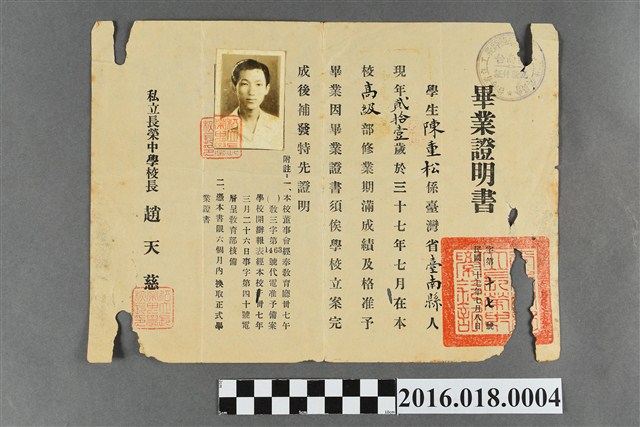 畢業證明書
學生陳重松係臺灣省臺南縣人
現年貳拾壹歲於三十七年七月在本
校高級部修業期滿成績及格准予
畢業因畢業證書須俟學校立案完
成後補發特先證明
附註·一、本校董事會經奉敎育廳卅七午
敎三字第1463號代電准予備案
學校開辦報表經本校卅七年
三月二十六日事字第四十號電
層呈敎育部核備
二、憑本書限六個月內換取正式學
業證書
私立長榮中學校長 趙天慈
字第十七號
民國三十七年七月八日
2016.018.0004